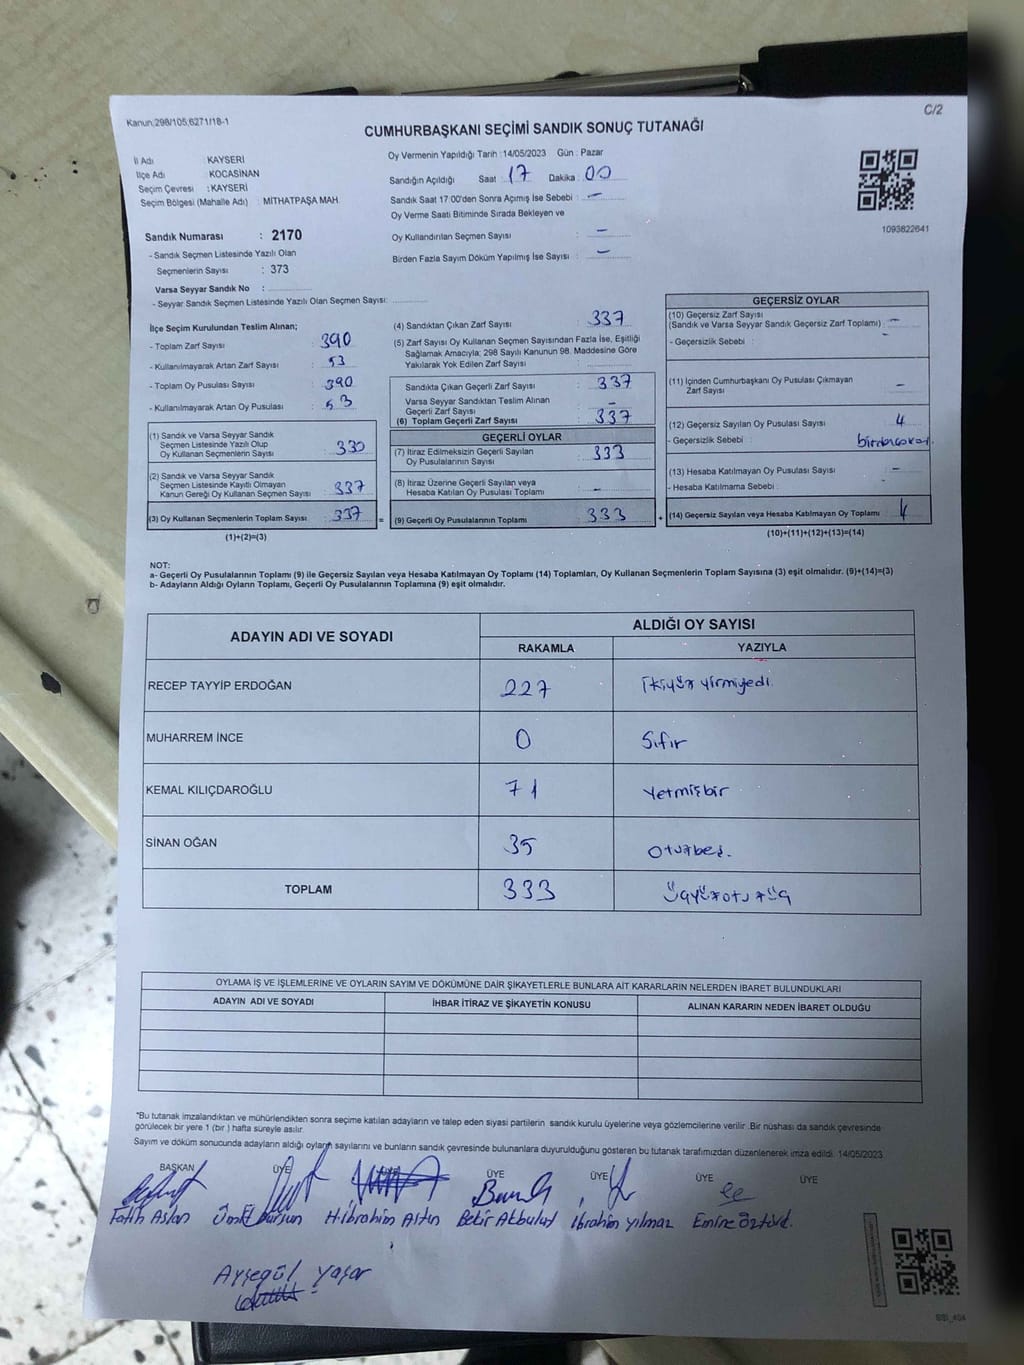 C/2
Kanun;298/105,6271/18-1
CUMHURBAŞKANI SEÇİMİ SANDIK SONUÇ TUTANAĞI
İl Adı KAYSERİ
İlçe Adı KOCASİNAN
Seçim Çevresi : KAYSERİ
Seçim Bölgesi (Mahalle Adı) : MİTHATPAŞA MAH.
Sandık Numarası : 2170
- Sandık Seçmen Listesinde Yazılı Olan
Seçmenlerin Sayısı : 373
Varsa Seyyar Sandık No :
- Seyyar Sandık Seçmen Listesinde Yazılı Olan Seçmen Sayısı:
Oy Vermenin Yapıldığı Tarih : 14/05/2023 Gün : Pazar
Sandığın Açıldığı Saat : 17 Dakika : 00
Sandık Saat 17:00'den Sonra Açımış İse Sebebi : —
Oy Verme Saati Bitiminde Sırada Bekleyen ve
Oy Kullandırılan Seçmen Sayısı : —
Birden Fazla Sayım Döküm Yapılmış İse Sayısı : —
1093822641
İlçe Seçim Kurulundan Teslim Alınan;
- Toplam Zarf Sayısı : 390
- Kullanılmayarak Artan Zarf Sayısı : 53
- Toplam Oy Pusulası Sayısı : 390
- Kullanılmayarak Artan Oy Pusulası : 53
(1) Sandık ve Varsa Seyyar Sandık
Seçmen Listesinde Yazılı Olup
Oy Kullanan Seçmenlerin Sayısı : 330
(2) Sandık ve Varsa Seyyar Sandık
Seçmen Listesinde Kayıtlı Olmayan
Kanun Gereği Oy Kullanan Seçmen Sayısı : 337
(3) Oy Kullanan Seçmenlerin Toplam Sayısı : 337
(1)+(2)=(3)
(4) Sandıktan Çıkan Zarf Sayısı : 337
(5) Zarf Sayısı Oy Kullanan Seçmen Sayısından Fazla İse, Eşitliği
Sağlamak Amacıyla; 298 Sayılı Kanunun 98. Maddesine Göre
Yakılarak Yok Edilen Zarf Sayısı :
Sandıkta Çıkan Geçerli Zarf Sayısı : 337
Varsa Seyyar Sandıktan Teslim Alınan
Geçerli Zarf Sayısı : —
(6) Toplam Geçerli Zarf Sayısı : 337
GEÇERLİ OYLAR
(7) İtiraz Edilmeksizin Geçerli Sayılan
Oy Pusulalarının Sayısı : 333
(8) İtiraz Üzerine Geçerli Sayılan veya
Hesaba Katılan Oy Pusulası Toplamı : —
(9) Geçerli Oy Pusulalarının Toplamı : 333
GEÇERSİZ OYLAR
(10) Geçersiz Zarf Sayısı
(Sandık ve Varsa Seyyar Sandık Geçersiz Zarf Toplamı) : —
- Geçersizlik Sebebi : -
(11) İçinden Cumhurbaşkanı Oy Pusulası Çıkmayan
Zarf Sayısı : —
(12) Geçersiz Sayılan Oy Pusulası Sayısı : 4
- Geçersizlik Sebebi :
(13) Hesaba Katılmayan Oy Pusulası Sayısı : —
- Hesaba Katılmama Sebebi : -
(14) Geçersiz Sayılan veya Hesaba Katılmayan Oy Toplamı : 4
(10)+(11)+(12)+(13)=(14)
NOT:
a- Geçerli Oy Pusulalarının Toplamı (9) ile Geçersiz Sayılan veya Hesaba Katılmayan Oy Toplamı (14) Toplamları, Oy Kullanan Seçmenlerin Toplam Sayısına (3) eşit olmalıdır. (9)+(14)=(3)
b- Adayların Aldığı Oyların Toplamı, Geçerli Oy Pusulalarının Toplamına (9) eşit olmalıdır.
ADAYIN ADI VE SOYADI ALDIĞI OY SAYISI
RAKAMLA YAZIYLA
RECEP TAYYİP ERDOĞAN 227 İkiyüz yirmiyedi
MUHARREM İNCE 0 Sıfır
KEMAL KILIÇDAROĞLU 71 Yetmişbir
SİNAN OĞAN 35 Otuzbeş.
TOPLAM 333 üçyüzotuzüç
OYLAMA İŞ VE İŞLEMLERİNE VE OYLARIN SAYIM VE DÖKÜMÜNE DAİR ŞİKAYETLERLE BUNLARA AİT KARARLARIN NELERDEN İBARET BULUNDUKLARI
ADAYIN ADI VE SOYADI İHBAR İTİRAZ VE ŞİKAYETİN KONUSU ALINAN KARARIN NEDEN İBARET OLDUĞU
*Bu tutanak imzalandıktan ve mühürlendikten sonra seçime katılan adayların ve talep eden siyasi partilerin sandık kurulu üyelerine veya gözlemcilerine verilir .Bir nüshası da sandık çevresinde
görülecek bir yere 1 (bir ) hafta süreyle asılır.
Sayım ve döküm sonucunda adayların aldığı oyların sayılarını ve bunların sandık çevresinde bulunanlara duyurulduğunu gösteren bu tutanak tarafımızdan düzenlenerek imza edildi. 14/05/2023
BAŞKAN ÜYE ÜYE ÜYE ÜYE ÜYE
Fatih Aslan Ümit Dursun H.ibrahim Altın Bekir Akbulut ibrahim yılmaz Emine Öztürk.
Ayşegül Yaşar